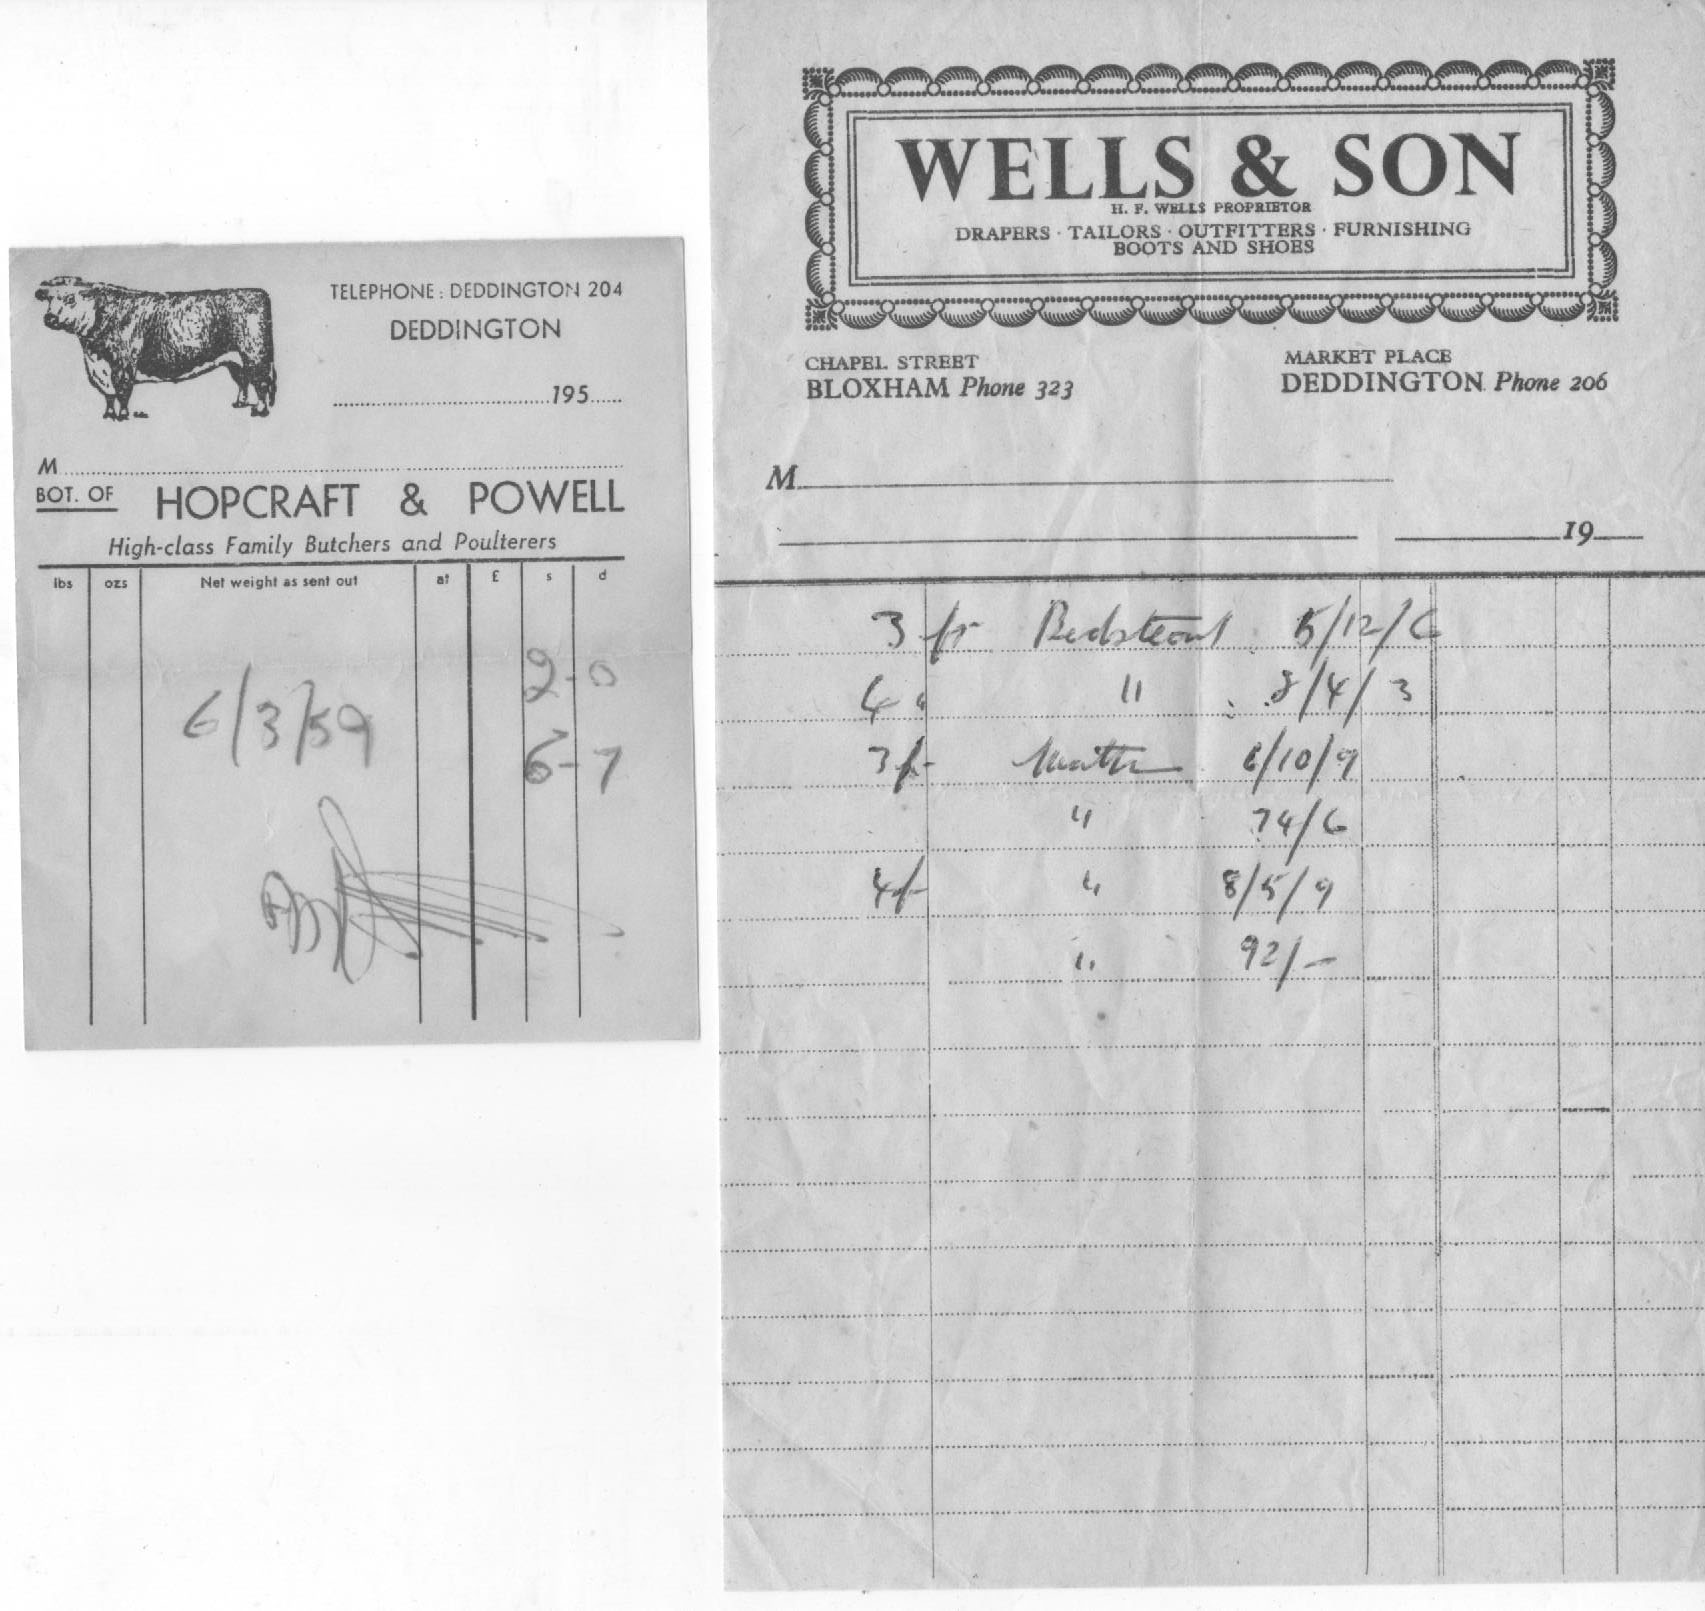 TELEPHONE : DEDDINGTON 204
DEDDINGTON
195
M
BOT. OF HOPCRAFT & POWELL
High-class Family Butchers and Poulterers
lbs ozs Net weight as sent out at £ s d
2-0
6/3/59
6-7
WELLS & SON
H. F. WELLS PROPRIETOR
DRAPERS · TAILORS · OUTFITTERS · FURNISHING
BOOTS AND SHOES
CHAPEL STREET
BLOXHAM Phone 323
MARKET PLACE
DEDDINGTON Phone 206
M
19
3 ft Bedstead 5/12/6
4 " " 8/4/3
3 ft Matt 6/10/9
" 74/6
4 ft " 8/5/9
" 92/-